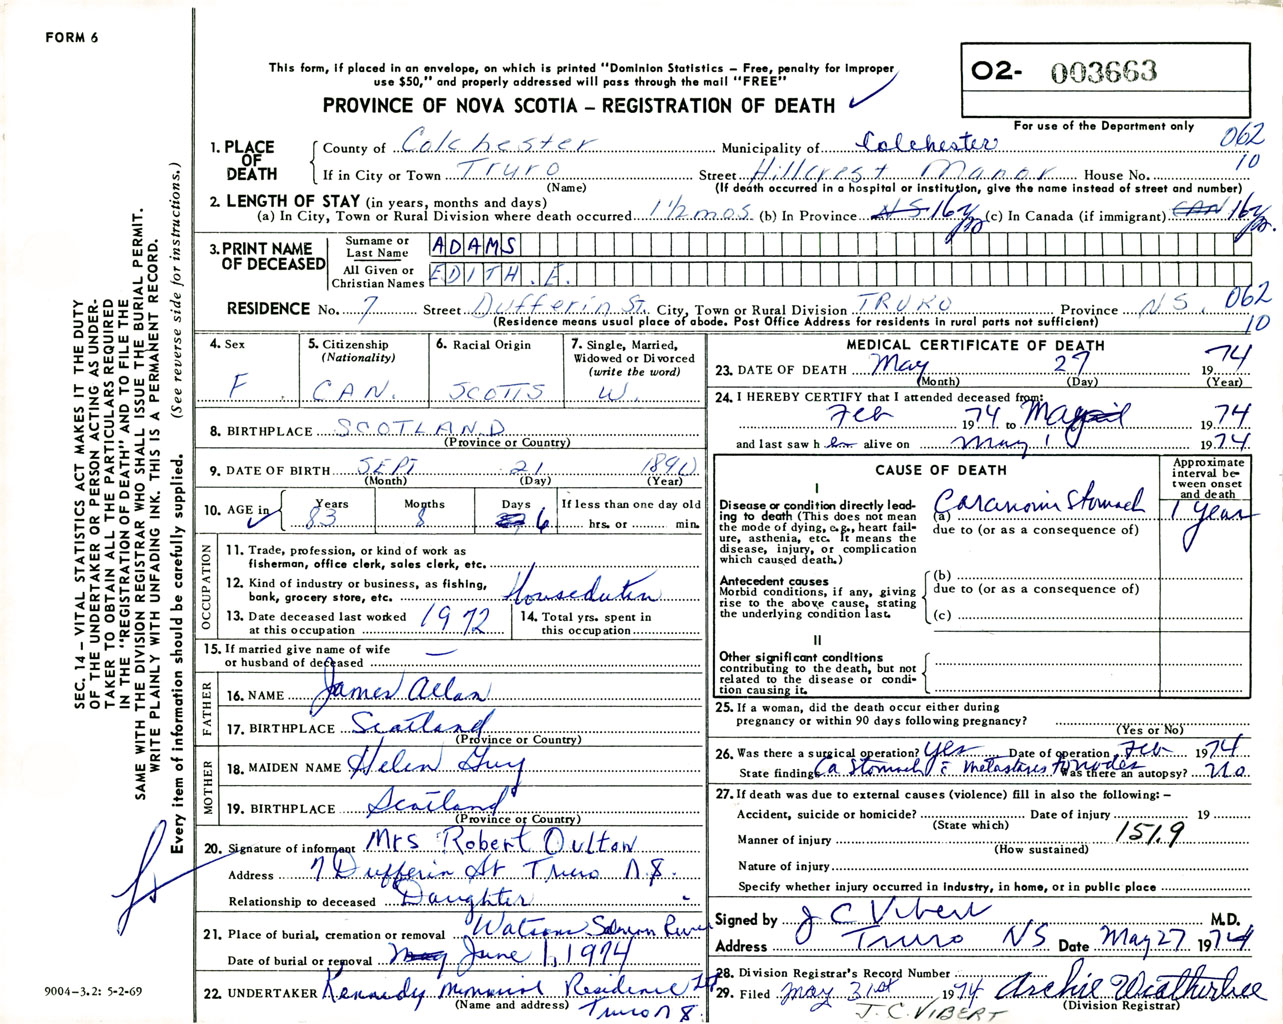 FORM 6
This form, if placed in an envelope, on which is printed "Dominion Statistics – Free, penalty for improper
use $50," and properly addressed will pass through the mail "FREE"
O2- 003663
PROVINCE OF NOVA SCOTIA – REGISTRATION OF DEATH
For use of the Department only
062
10
1. PLACE OF DEATH
County of Colchester Municipality of Colchester
If in City or Town Truro Street Hillcrest Manor House No.
(Name) (If death occurred in a hospital or institution, give the name instead of street and number)
2. LENGTH OF STAY (in years, months and days)
(a) In City, Town or Rural Division where death occurred 1½ mos. (b) In Province NS 16 y (c) In Canada (if immigrant) CAN 16 y
3. PRINT NAME OF DECEASED
Surname or Last Name ADAMS
All Given or Christian Names EDITH. E.
RESIDENCE No. 7 Street Dufferin St. City, Town or Rural Division TRURO Province N.S. 062
(Residence means usual place of abode. Post Office Address for residents in rural parts not sufficient) 10
4. Sex F.
5. Citizenship (Nationality) CAN.
6. Racial Origin SCOTTS
7. Single, Married, Widowed or Divorced (write the word) W.
8. BIRTHPLACE SCOTLAND
(Province or Country)
9. DATE OF BIRTH SEPT 21 1890
(Month) (Day) (Year)
10. AGE in Years 83 Months 8 Days 6 If less than one day old
hrs. or min.
OCCUPATION
11. Trade, profession, or kind of work as
fisherman, office clerk, sales clerk, etc.
12. Kind of industry or business, as fishing,
bank, grocery store, etc. Houseduties
13. Date deceased last worked
at this occupation 1972
14. Total yrs. spent in
this occupation
15. If married give name of wife
or husband of deceased —
FATHER
16. NAME James Allan
17. BIRTHPLACE Scotland
(Province or Country)
MOTHER
18. MAIDEN NAME Helen Guy
19. BIRTHPLACE Scotland
(Province or Country)
20. Signature of informant Mrs Robert Oulton
Address 7 Dufferin St Truro N.S.
Relationship to deceased Daughter
21. Place of burial, cremation or removal Watsons Salmon River
Date of burial or removal May June 1, 1974
22. UNDERTAKER Kennedy Memorial Residence Ltd
(Name and address) Truro N.S.
MEDICAL CERTIFICATE OF DEATH
23. DATE OF DEATH May 27 1974
(Month) (Day) (Year)
24. I HEREBY CERTIFY that I attended deceased from:
Feb 1974 to May 1974
and last saw h er alive on May 1 1974
CAUSE OF DEATH
Approximate interval between onset and death
I
Disease or condition directly leading to death (This does not mean
the mode of dying, e.g., heart failure, asthenia, etc. It means the
disease, injury, or complication
which caused death.)
(a) Caranoma Stomach 1 year
due to (or as a consequence of)
Antecedent causes
Morbid conditions, if any, giving
rise to the above cause, stating
the underlying condition last.
(b)
due to (or as a consequence of)
(c)
II
Other significant conditions
contributing to the death, but not
related to the disease or condition causing it.
25. If a woman, did the death occur either during
pregnancy or within 90 days following pregnancy?
(Yes or No)
26. Was there a surgical operation? Yes Date of operation Feb 1974
State findings Ca Stomach c̄ metastases to nodes Was there an autopsy? No
27. If death was due to external causes (violence) fill in also the following: –
Accident, suicide or homicide? Date of injury 19
(State which)
Manner of injury 151.9
(How sustained)
Nature of injury
Specify whether injury occurred in industry, in home, or in public place
Signed by J C Vibert M.D.
Address Truro NS Date May 27 1974
28. Division Registrar's Record Number
29. Filed May 31st 1974 Archie Weatherbee
(Division Registrar)
J. C. VIBERT
SEC. 14 – VITAL STATISTICS ACT MAKES IT THE DUTY
OF THE UNDERTAKER OR PERSON ACTING AS UNDERTAKER TO OBTAIN ALL THE PARTICULARS REQUIRED
IN THE "REGISTRATION OF DEATH" AND TO FILE THE
SAME WITH THE DIVISION REGISTRAR WHO SHALL ISSUE THE BURIAL PERMIT.
WRITE PLAINLY WITH UNFADING INK. THIS IS A PERMANENT RECORD.
Every item of information should be carefully supplied. (See reverse side for instructions.)
9004-3.2: 5-2-69